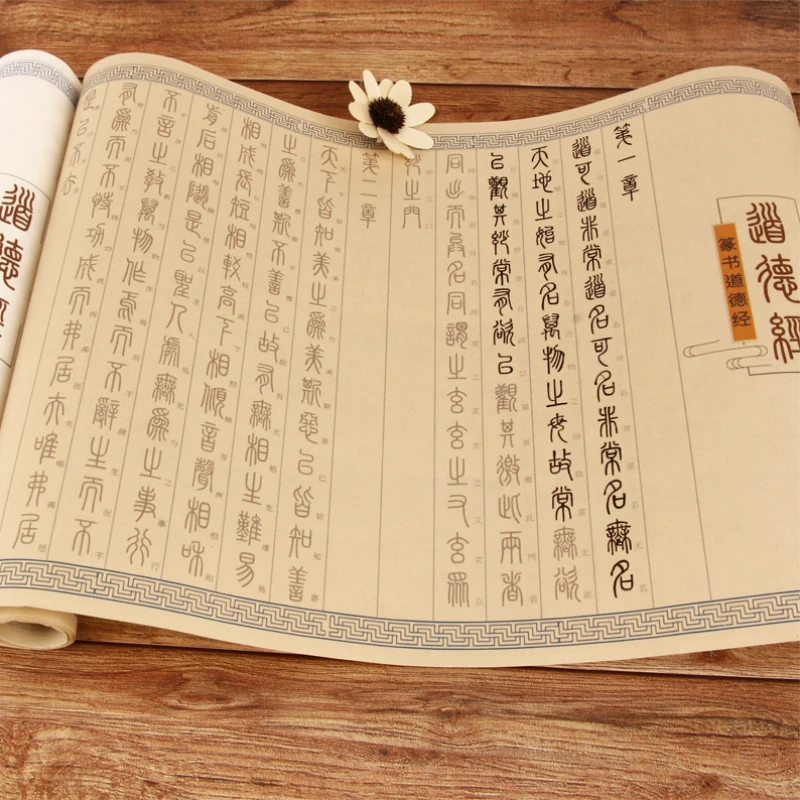 道德經
篆书道德经
第一章
道可道非常道名可名非常名無名
天地之始有名萬物之母故常無欲
以觀其妙常有欲以觀其徼此兩者
同出而異名同謂之玄玄之又玄眾
妙之門
第二章
天下皆知美之為美斯惡已皆知善
之為善斯不善已故有無相生難易
相成長短相較高下相傾音聲相和
前后相隨是以聖人處無為之事行
不言之教萬物作焉而不辭生而不
有為而不恃功成而弗居夫唯弗居
是以不去
道德